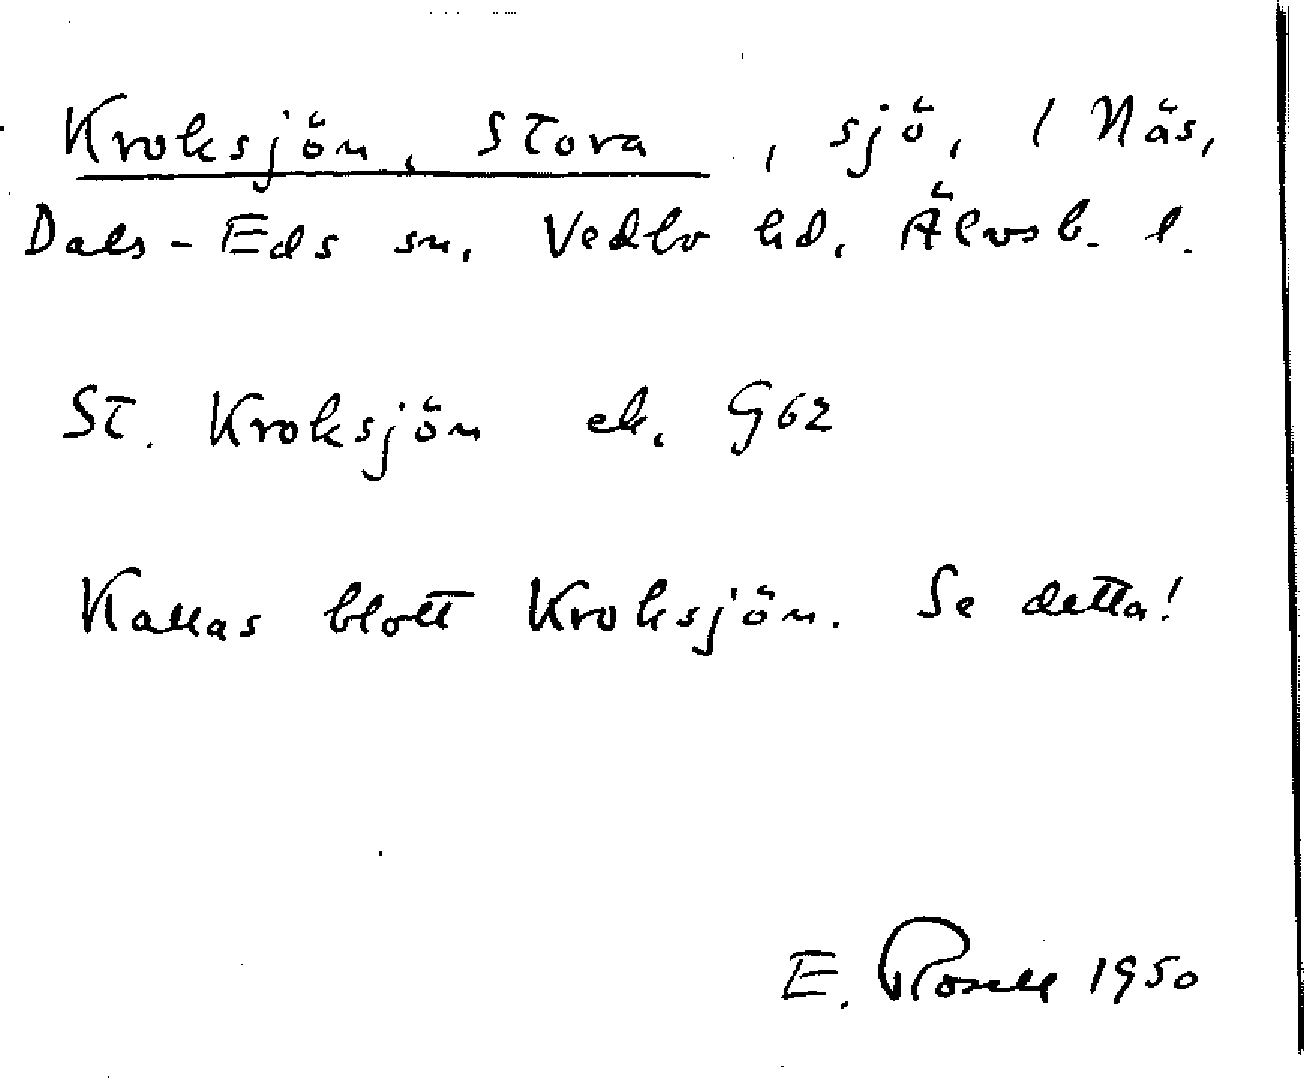 Kroksjön, Stora, sjö, (Näs,
Dals-Eds sn. Vedbo hd. Älvsb. l.
St. Kroksjön ek. G62
Kallas blott Kroksjön. Se detta!
E. Rosell 1950